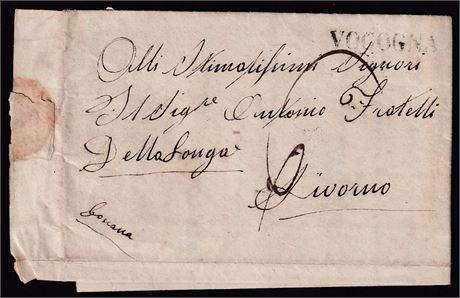 VOGOGNA
Alli Stimatissimi Signori
Sigri Antonio Fratelli
Della Longa
Livorno